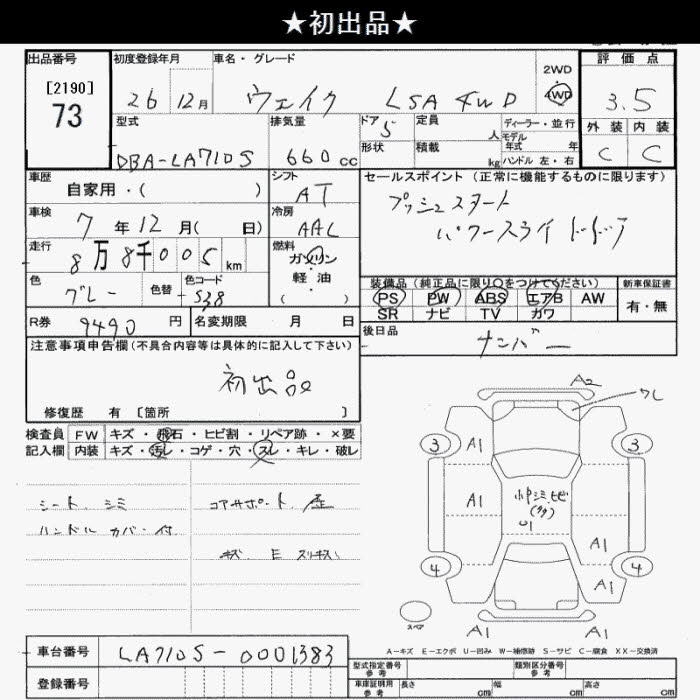 ★初出品★
出品番号 初度登録年月 車名・グレード 2WD 評価点
[2190]
73 26 12月 ウェイク LSA 4WD 4WD 3.5
型式 排気量 ドア 5 定員 人 ディーラー・並行 外装 内装
モデル年式 年
DBA-LA710S 660cc 形状 積載 kg ハンドル 左・右 C C
車歴 自家用・( ) シフト AT セールスポイント(正常に機能するものに限ります)
車検 7年12月( 日) 冷房 AAC プッシュスタート
パワースライドドア
走行 8万8千005km 燃料 ガソリン
軽・油
( )
色 グレー 色替 色コード S38 装備品(純正品に限り○をつけて下さい) 新車保証書
PS PW ABS エアB AW 有・無
SR ナビ TV カワ
R券 9490円 名変期限 月 日 後日品 ナンバー
注意事項申告欄(不具合内容等は具体的に記入して下さい)
初出品
修復歴 有 [箇所 ]
検査員 FW キズ・飛石・ヒビ割・リペア跡・×要
記入欄 内装 キズ・汚レ・コゲ・穴・スレ・キレ・破レ
シート シミ コアサポート
ハンドル カバー 付
キズ E
A2
ワレ
3 A1 3
A1
U1
A1
4 4
A1
スペア A1 A1
A-キズ E-エクボ U-凹み W-補修跡 S-サビ C-腐食 XX-交換済
車台番号 LA710S-0001383
登録番号
型式指定番号 参考 類別区分番号 参考
車庫証明用 参考 長さ cm 幅 cm 高さ cm